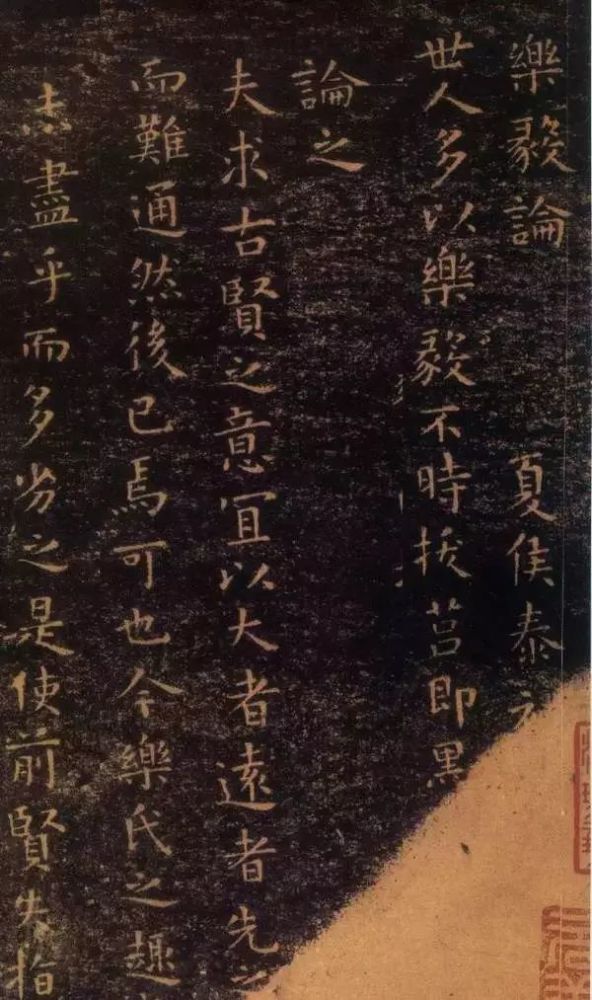 樂毅論 夏侯泰
世人多以樂毅不時拔莒即
論之
夫求古賢之意宜以大者遠者先之
而難通然後已焉可也今樂氏之趣
未盡乎而多劣之是使前賢失指